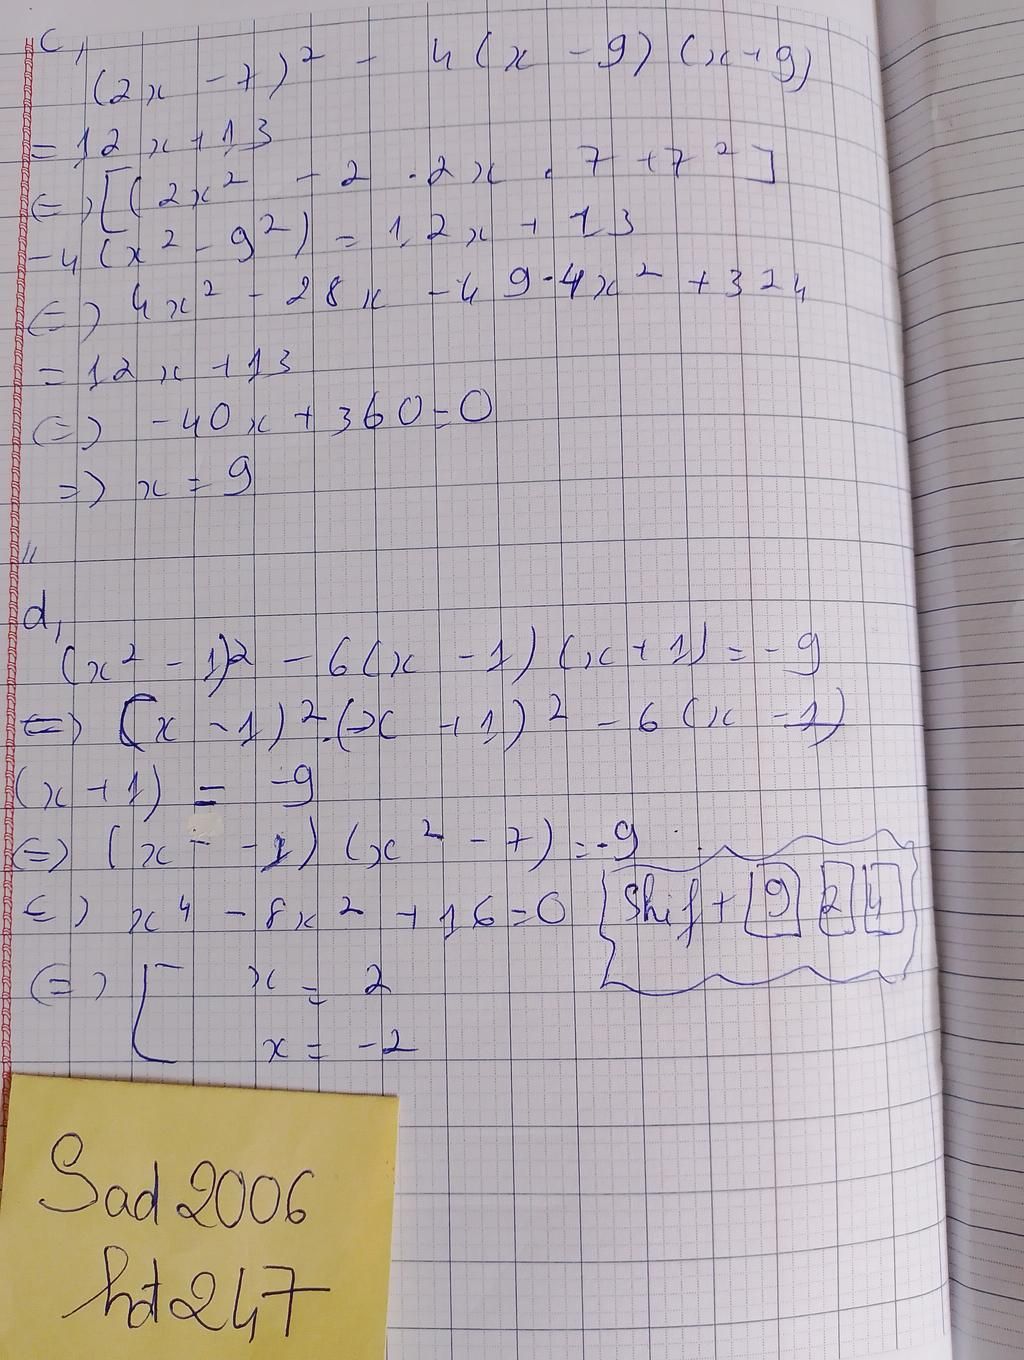 c,
(2x - 7)² - 4(x - 9)(x + 9)
= 12x + 13
⇔ [(2x² - 2 . 2x . 7 + 7²]
- 4(x² - 9²) = 12x + 13
⇔ 4x² - 28x - 49 - 4x² + 324
= 12x + 13
⇔ -40x + 360 = 0
⇒ x = 9
d,
(x² - 1)² - 6(x - 1)(x + 1) = -9
⇔ (x - 1)².(x + 1)² - 6(x - 1)
(x + 1) = -9
⇔ (x - -1)(x² - 7) = -9
⇔ x⁴ - 8x² + 16 = 0 [Shif + [9] [2] [4]
⇔ [ x = 2
x = -2
Sad 2006
hd247